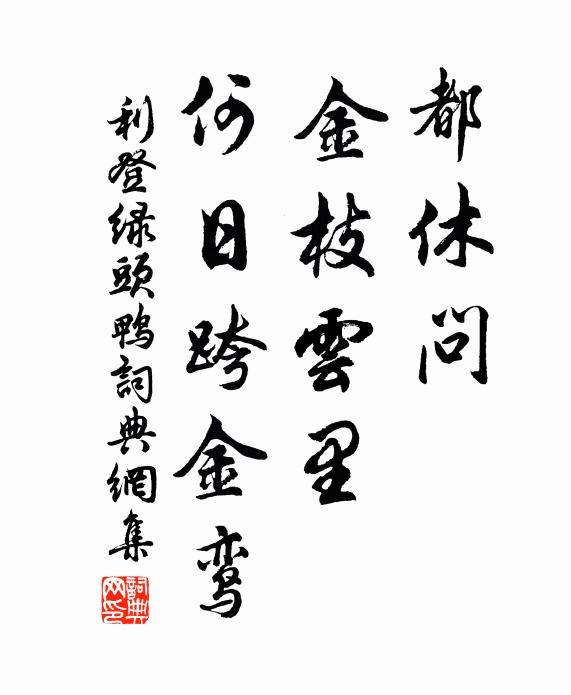 都休问
金枝雲里
何日跨金鸾
利登绿頭鴨詞典網集
詞典网印